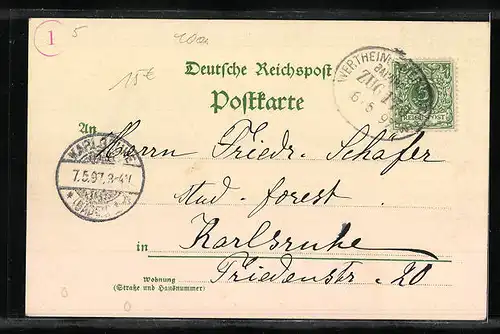 1
5
15€
Deutsche Reichspost
Postkarte
BAHNPOST
ZUG
6 5 9
5
REICHSPOST
An
Herrn Friedr. Schäfer
KARLSRUHE
7.5.97. 3-4N
(BADEN)
stud. forest.
in Karlsruhe
Wohnung
(Straße und Hausnummer)
Friedenstr. 20